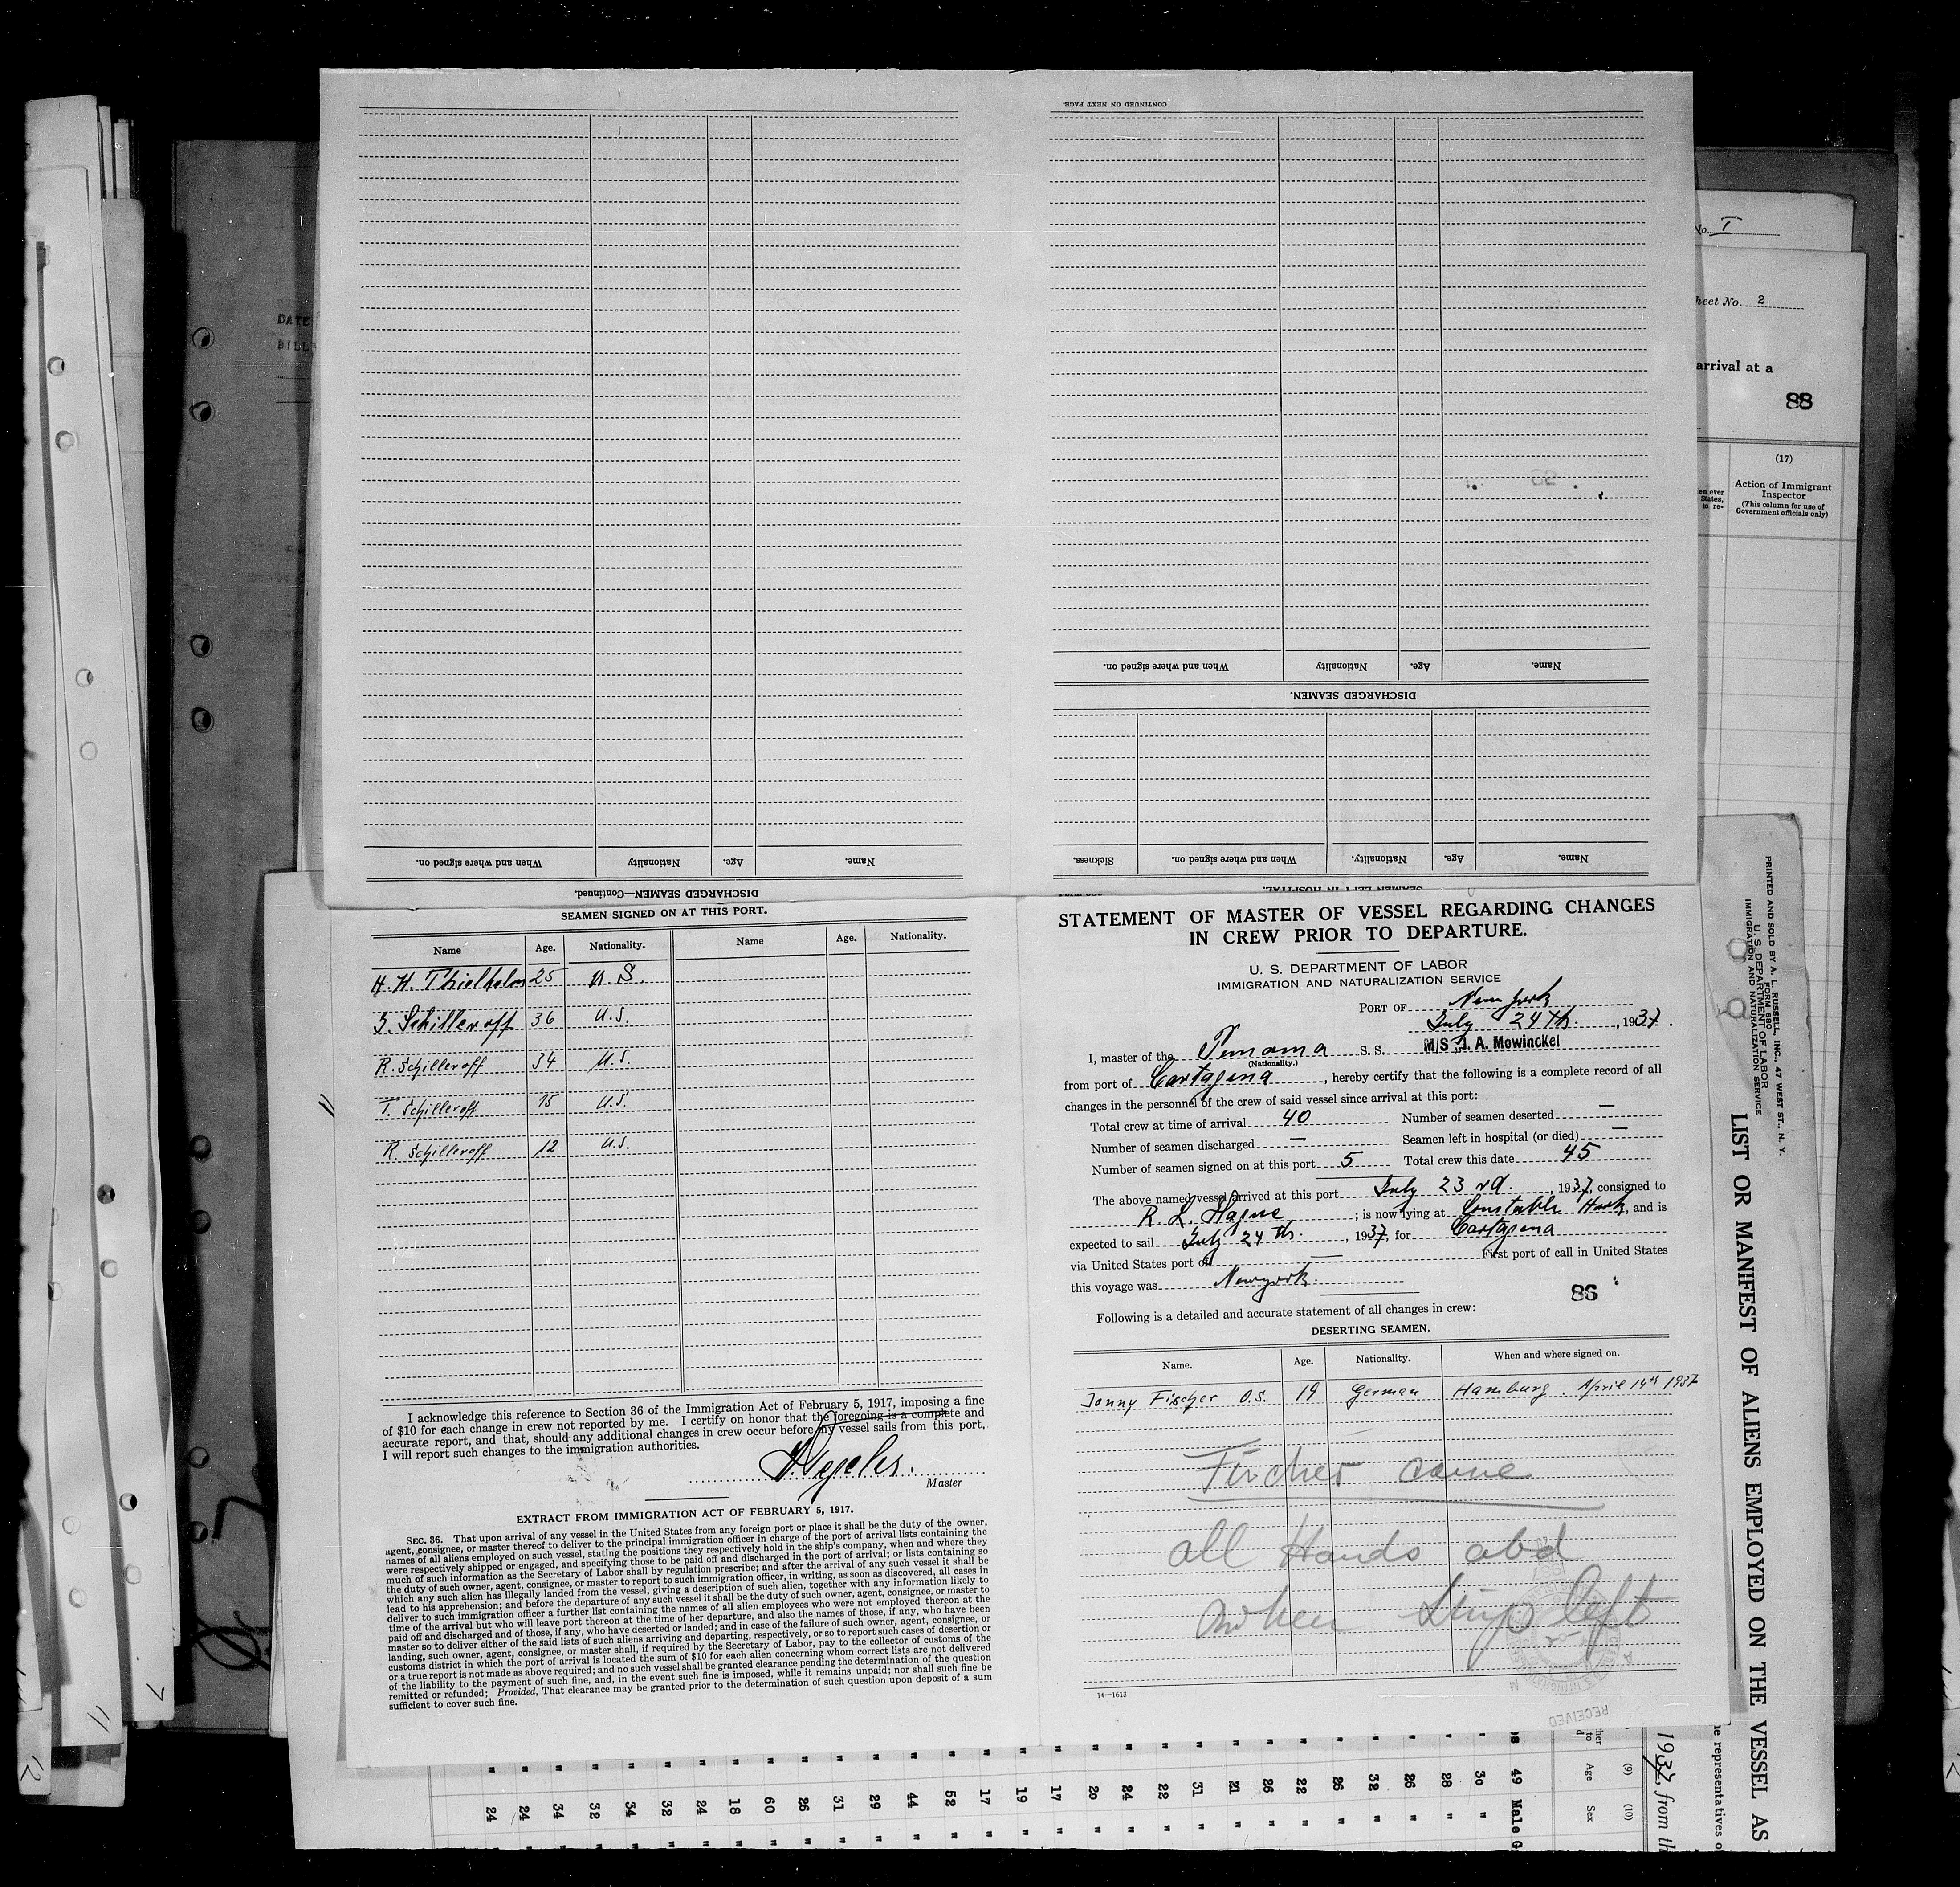 CONTINUED ON NEXT PAGE.
When and where signed on. Nationality Age. Name.
DISCHARGED SEAMEN.
Sickness. When and where signed on. Nationality. Age. Name.
SEAMEN LEFT IN HOSPITAL.
When and where signed on. Nationality Age. Name.
DISCHARGED SEAMEN—Continued.
SEAMEN SIGNED ON AT THIS PORT.
Name Age. Nationality. Name Age. Nationality.
H. H. Thielhelm 25 U.S.
Schilleroff 36 U.S.
R. Schilleroff 34 U.S.
T. Schilleroff 15 U.S.
R. Schilleroff 12 U.S.
I acknowledge this reference to Section 36 of the Immigration Act of February 5, 1917, imposing a fine
of $10 for each change in crew not reported by me. I certify on honor that the foregoing is a complete and
accurate report, and that, should any additional changes in crew occur before my vessel sails from this port,
I will report such changes to the immigration authorities.
Master
EXTRACT FROM IMMIGRATION ACT OF FEBRUARY 5, 1917.
SEC. 36. That upon arrival of any vessel in the United States from any foreign port or place it shall be the duty of the owner,
agent, consignee, or master thereof to deliver to the principal immigration officer in charge of the port of arrival lists containing the
names of all aliens employed on such vessel, stating the positions they respectively hold in the ship's company, when and where they
were respectively shipped or engaged, and specifying those to be paid off and discharged in the port of arrival; or lists containing so
much of such information as the Secretary of Labor shall by regulation prescribe; and after the arrival of any such vessel it shall be
the duty of such owner, agent, consignee, or master to report to such immigration officer, in writing, as soon as discovered, all cases in
which any such alien has illegally landed from the vessel, giving a description of such alien, together with any information likely to
lead to his apprehension; and before the departure of any such vessel it shall be the duty of such owner, agent, consignee, or master to
deliver to such immigration officer a further list containing the names of all alien employees who were not employed thereon at the
time of the arrival but who will leave port thereon at the time of her departure, and also the names of those, if any, who have been
paid off and discharged and of those, if any, who have deserted or landed; and in case of the failure of such owner, agent, consignee, or
master so to deliver either of the said lists of such aliens arriving and departing, respectively, or so to report such cases of desertion or
landing, such owner, agent, consignee, or master shall, if required by the Secretary of Labor, pay to the collector of customs of the
customs district in which the port of arrival is located the sum of $10 for each alien concerning whom correct lists are not delivered
or a true report is not made as above required; and no such vessel shall be granted clearance pending the determination of the question
of the liability to the payment of such fine, and, in the event such fine is imposed, while it remains unpaid; nor shall such fine be
remitted or refunded; Provided, That clearance may be granted prior to the determination of such question upon deposit of a sum
sufficient to cover such fine.
STATEMENT OF MASTER OF VESSEL REGARDING CHANGES
IN CREW PRIOR TO DEPARTURE.
U. S. DEPARTMENT OF LABOR
IMMIGRATION AND NATURALIZATION SERVICE
PORT OF New york
July 24th. , 1937.
I, master of the Panama S. S. M/S J. A. Mowinckel
(Nationality.)
from port of Cartagena , hereby certify that the following is a complete record of all
changes in the personnel of the crew of said vessel since arrival at this port:
Total crew at time of arrival 40 Number of seamen deserted —
Number of seamen discharged — Seamen left in hospital (or died) —
Number of seamen signed on at this port 5 Total crew this date 45
The above named vessel arrived at this port July 23rd. , 1937, consigned to
R. L. Hague ; is now lying at Constable Hook, and is
expected to sail July 24th. , 1937, for Cartagena
via United States port of — First port of call in United States
this voyage was Newyork.
86
Following is a detailed and accurate statement of all changes in crew:
DESERTING SEAMEN.
Name. Age. Nationality. When and where signed on.
Jonny Fischer O.S. 19 German Hamburg. April 14th 1937
Fischer came
all Hands abd
when Ship left
14—1613
RECEIVED
No. I
Sheet No. 2
arrival at a
88
(17)
Action of Immigrant
Inspector
(This column for use of
Government officials only)
PRINTED AND SOLD BY A. L. RUSSELL, INC., 47 WEST ST., N. Y.
FORM 680
U. S. DEPARTMENT OF LABOR
IMMIGRATION AND NATURALIZATION SERVICE
LIST OR MANIFEST OF ALIENS EMPLOYED ON THE VESSEL AS
1937, from th
he representatives o
(9) (10)
Age Sex
49 Male G
30 "
28 "
26 "
32 "
26 "
22 "
26 "
21 "
31 "
22 "
24 "
20 "
17 "
19 "
17 "
52 "
44 "
29 "
31 "
26 "
60 "
18 "
24 "
32 "
34 "
32 "
34 "
24 "
24 "
DATE
BILL
11
7
12